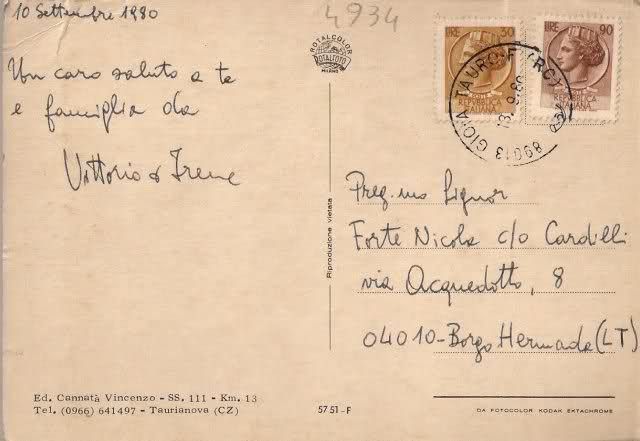 10 Settembre 1980
4934
Un caro saluto a te
e famiglia da
Vittorio e Irene
ROTALCOLOR
ROTALFOTO
MILANO
LIRE 30
POSTE
REPUBBLICA
ITALIANA
LIRE 90
REPUBBLICA
ITALIANA
89013 GIOIA TAURO (RC)
Preg.mo Signor
Forte Nicola c/o Cardilli
via Acquedotto, 8
04010-Borgo Hermada (LT)
Riproduzione vietata
Ed. Cannatà Vincenzo - SS. 111 - Km. 13
Tel. (0966) 641497 - Taurianova (CZ)
5751-F
DA FOTOCOLOR KODAK EKTACHROME